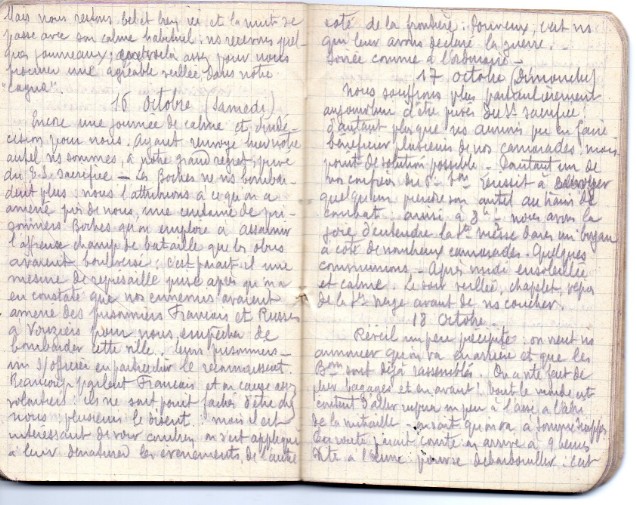 Mais nous restons bel et bien ici et la nuit se
passe avec son calme habituel : ns recevons quel
ques journaux; assez pour nous
procurer une agréable veillée dans notre
"cagna".
16 Octobre (Samedi)
Encore une journée de calme et d'indé
cision pour nous. Ayant renvoyé hier notre
autel ns sommes, à notre grand regret, privé
du S.S. Sacrifice - Les Boches ne ns bombar-
dent plus : nous l'attribuons à ce qu'on a
amené près de nous, une centaine de pri-
sonniers Boches qu'on emploie à assainir
l'affreux champ de bataille que les obus
avaient boulversé : c'est parait-il une
mesure de représaille prise après qu'on a
eu constaté que nos ennemis avaient
amené des prisonniers Français et Russes
à Vouziers pour nous empêcher de
bombarder cette ville. Leurs prisonniers -
un S/officier en particulier le reconnaissent.
Beaucoup parlent Français et on cause assez
volontiers : ils ne sont point fachés d'être chez
nous : plusieurs le disent : mais il est
intéressant de voir combien on s'est appliqué
à leur dénaturer les évènements, de l'autre
côté de la frontière : pour eux, c'est ns
qui leur avons déclaré la guerre. -
Soirée comme à l'ordinaire -
17 Octobre (Dimanche)
Nous souffrons plus particulièrement
aujourd'hui d'être privés du St Sacrifice
d'autant plus que ns aurions pu en faire
bénéficier plusieurs de nos camarades, mais
point de solution possible - Pourtant un de
nos confrères du 6e réussit à envoyer
quelqu'un prendre son autel au train de
combat : aussi à 3h nous avons la
joie d'entendre la Ste messe dans un boyau
à côté de nombreux camarades. Quelques
communions - Après midi ensoleillée
et calme. Le soir veillée, chapelet,
de la Ste Vierge avant de ns coucher.
18 Octobre.
Réveil un peu précipité : on vient ns
annoncer qu'on va en arrière et que les
sont déjà rassemblés. On a vite fait de
plier bagages et en avant ! tout le monde est
content d'aller respirer un peu à l'aise à l'abri
de la mitraille - parait qu'on va à
La route parait courte on arrive à 9 heures
Vite à l'Aisne pour se débarbouiller : c'est